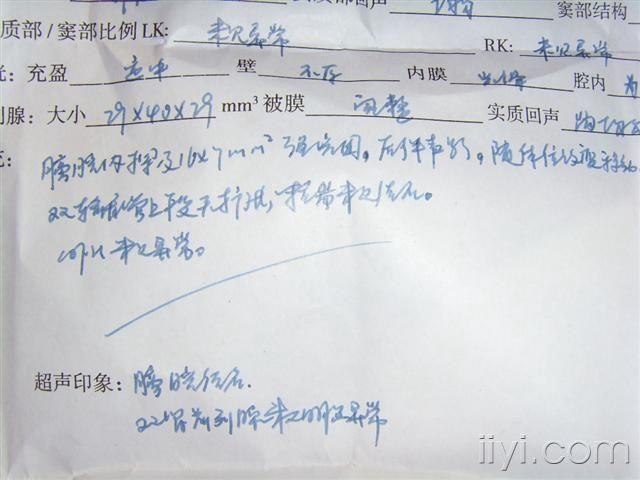 窦部结构
质部 / 窦部比例 LK: 未见异常 RK: 未见异常
充盈 适中 壁 不厚 内膜 光滑 腔内
腺: 大小 29×40×29 mm³ 被膜 完整 实质回声
膀胱内探及16×7mm²强光团，后伴声影，随体位改变移动
双输尿管上段无扩张，
CDFI 未见异常。
超声印象: 膀胱结石.
双肾前列腺未见明显异常
iiyi.com